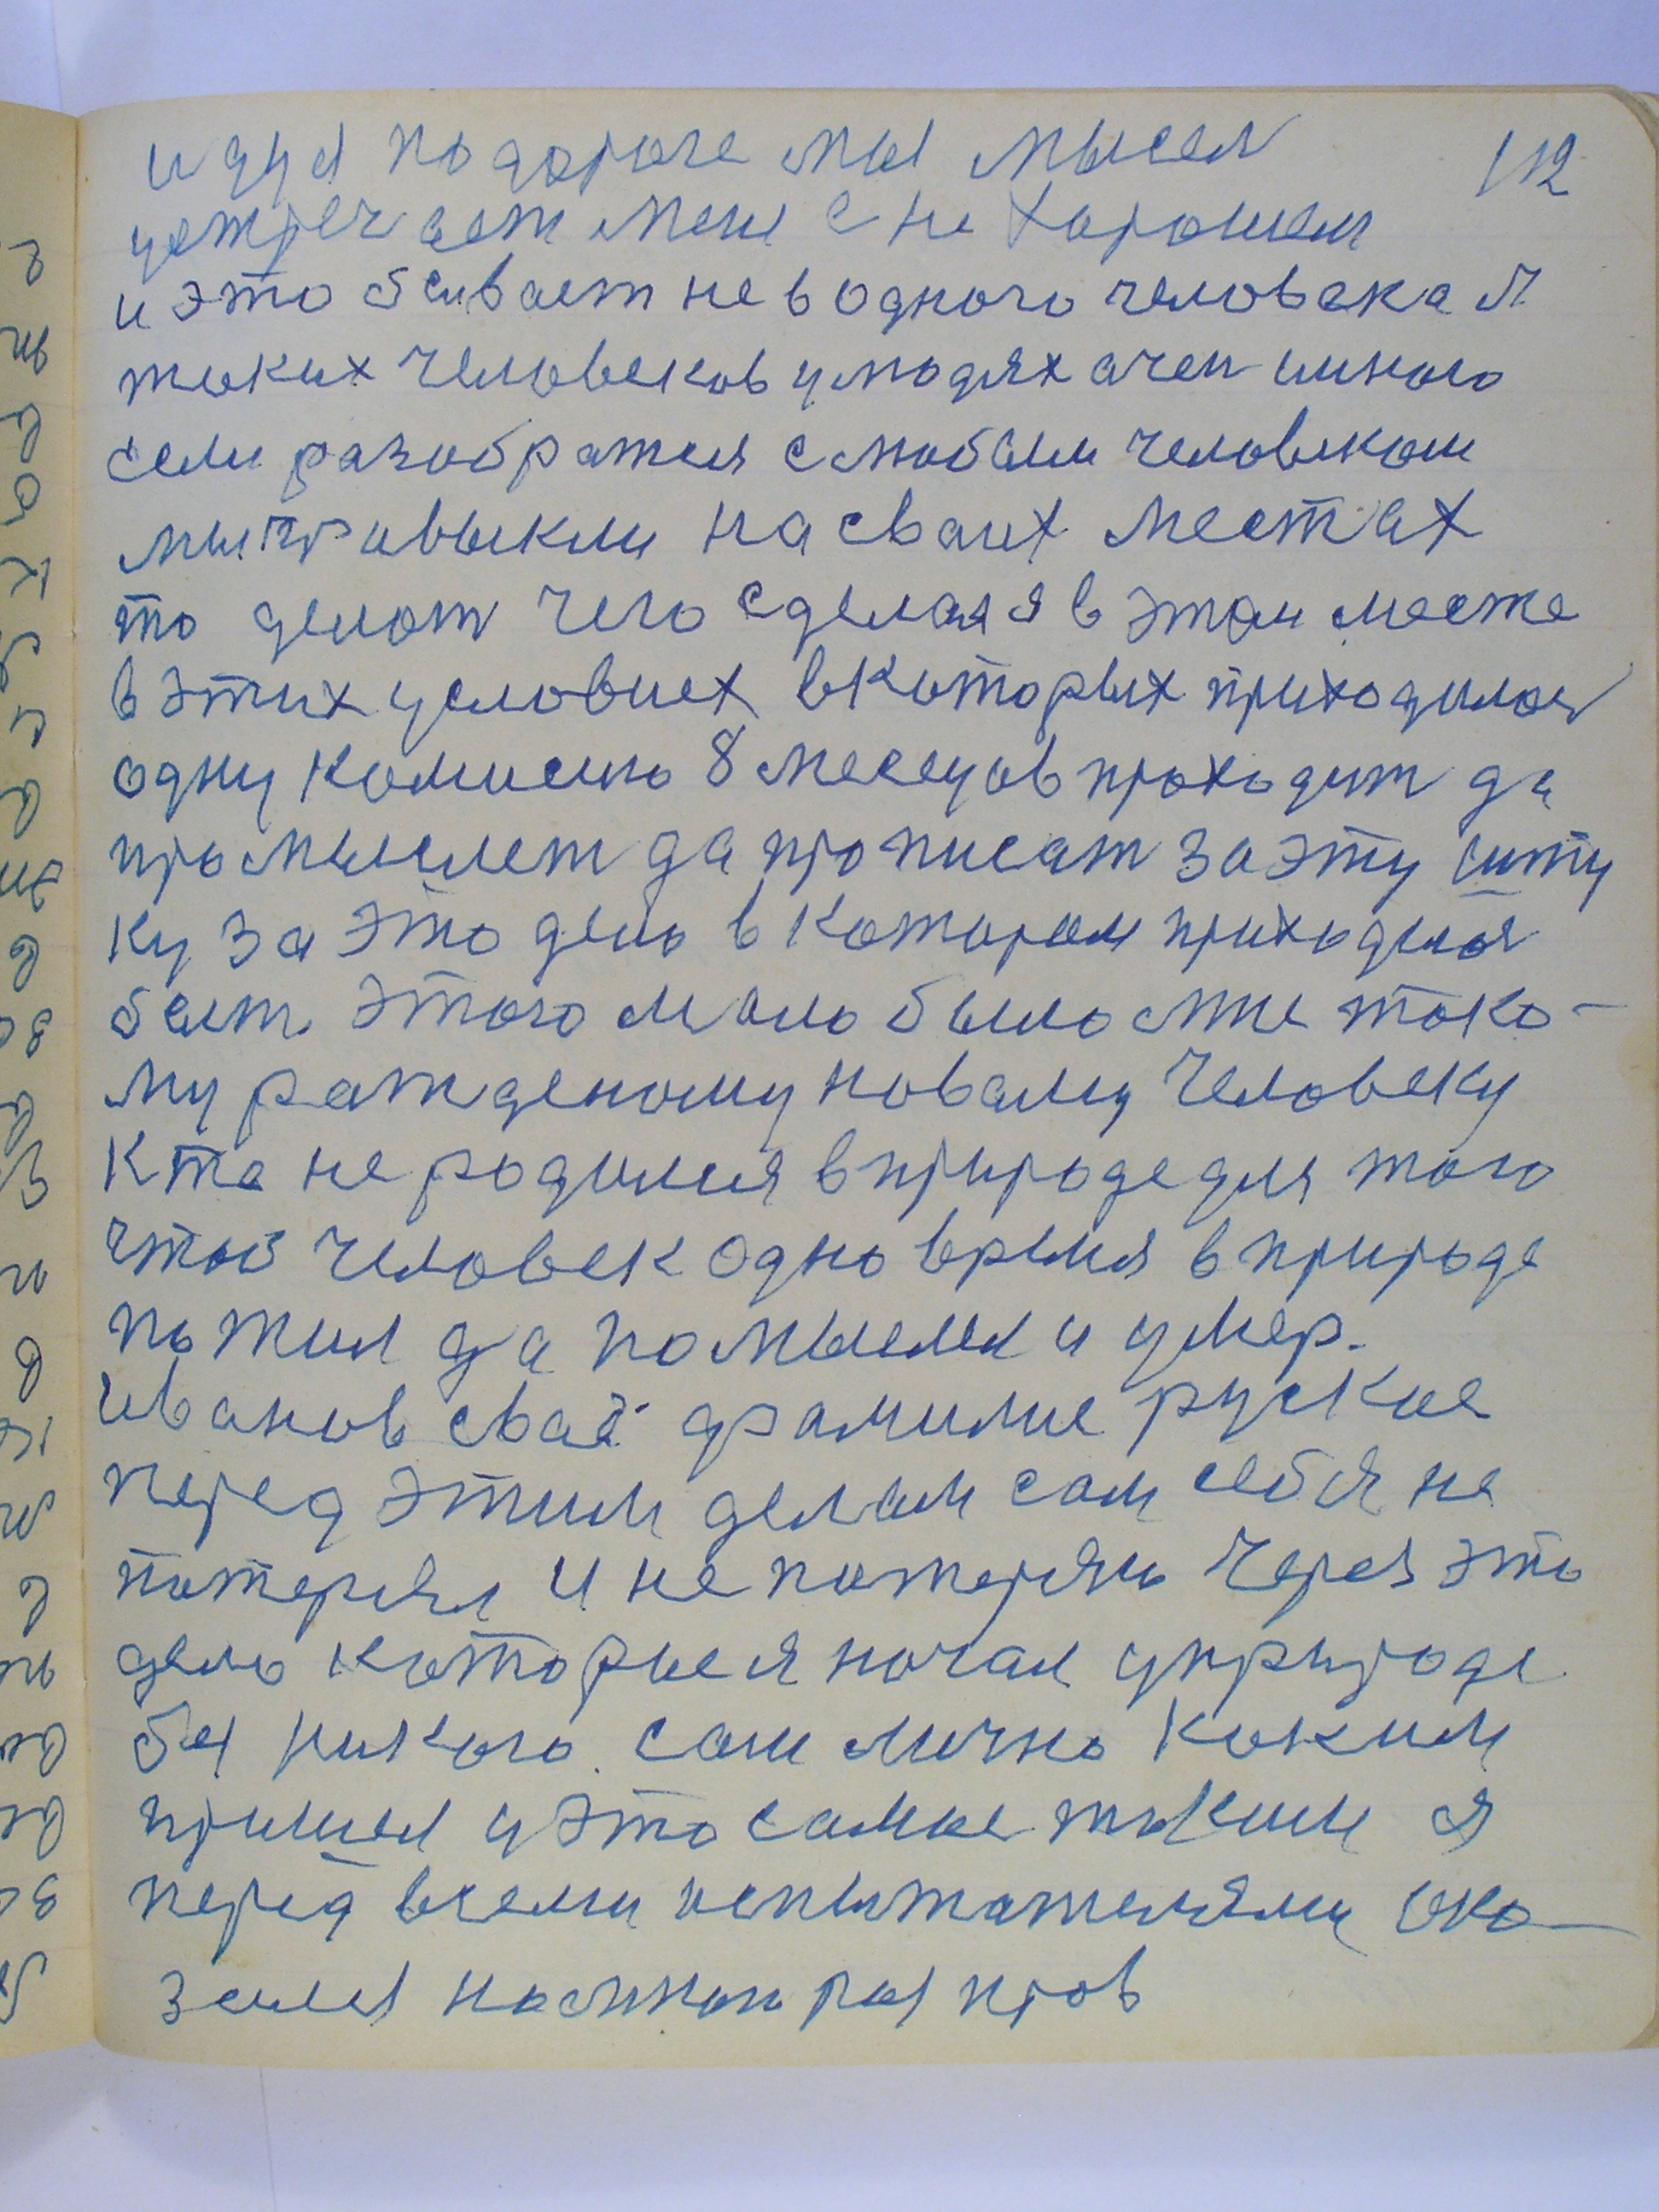 112
идя по дороге мы мысел
устречает меня с не хорошем
и это бывает не в одного человека А
таких человеков у людях очен много
если разобратся с любым человеком
мы привыкли на сваих местах
то делат чего сделал я в этом месте
в этих условиех в которых приходилоя
одну комисию 8 месецов проходит да
промышлет да прописат за эту шту
ку за это дело в котором приходилоя
быть этого мало было мне тако-
му ражденому новаму человеку
Кто не родился в природе для того
чтоб человек одно время в природе
пожил да помыслел и умер.
Иванов сваё фамилие руское
перед этим делам сам себя не
потерял и не потеряю через это
дело которые я начал у природе
без никого сам лично каким
пришел у это самое таким я
перед всеми испытателями ока-
зался на много раз прав